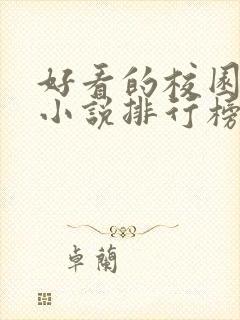 好看的校园
小说排行榜
卓蘭